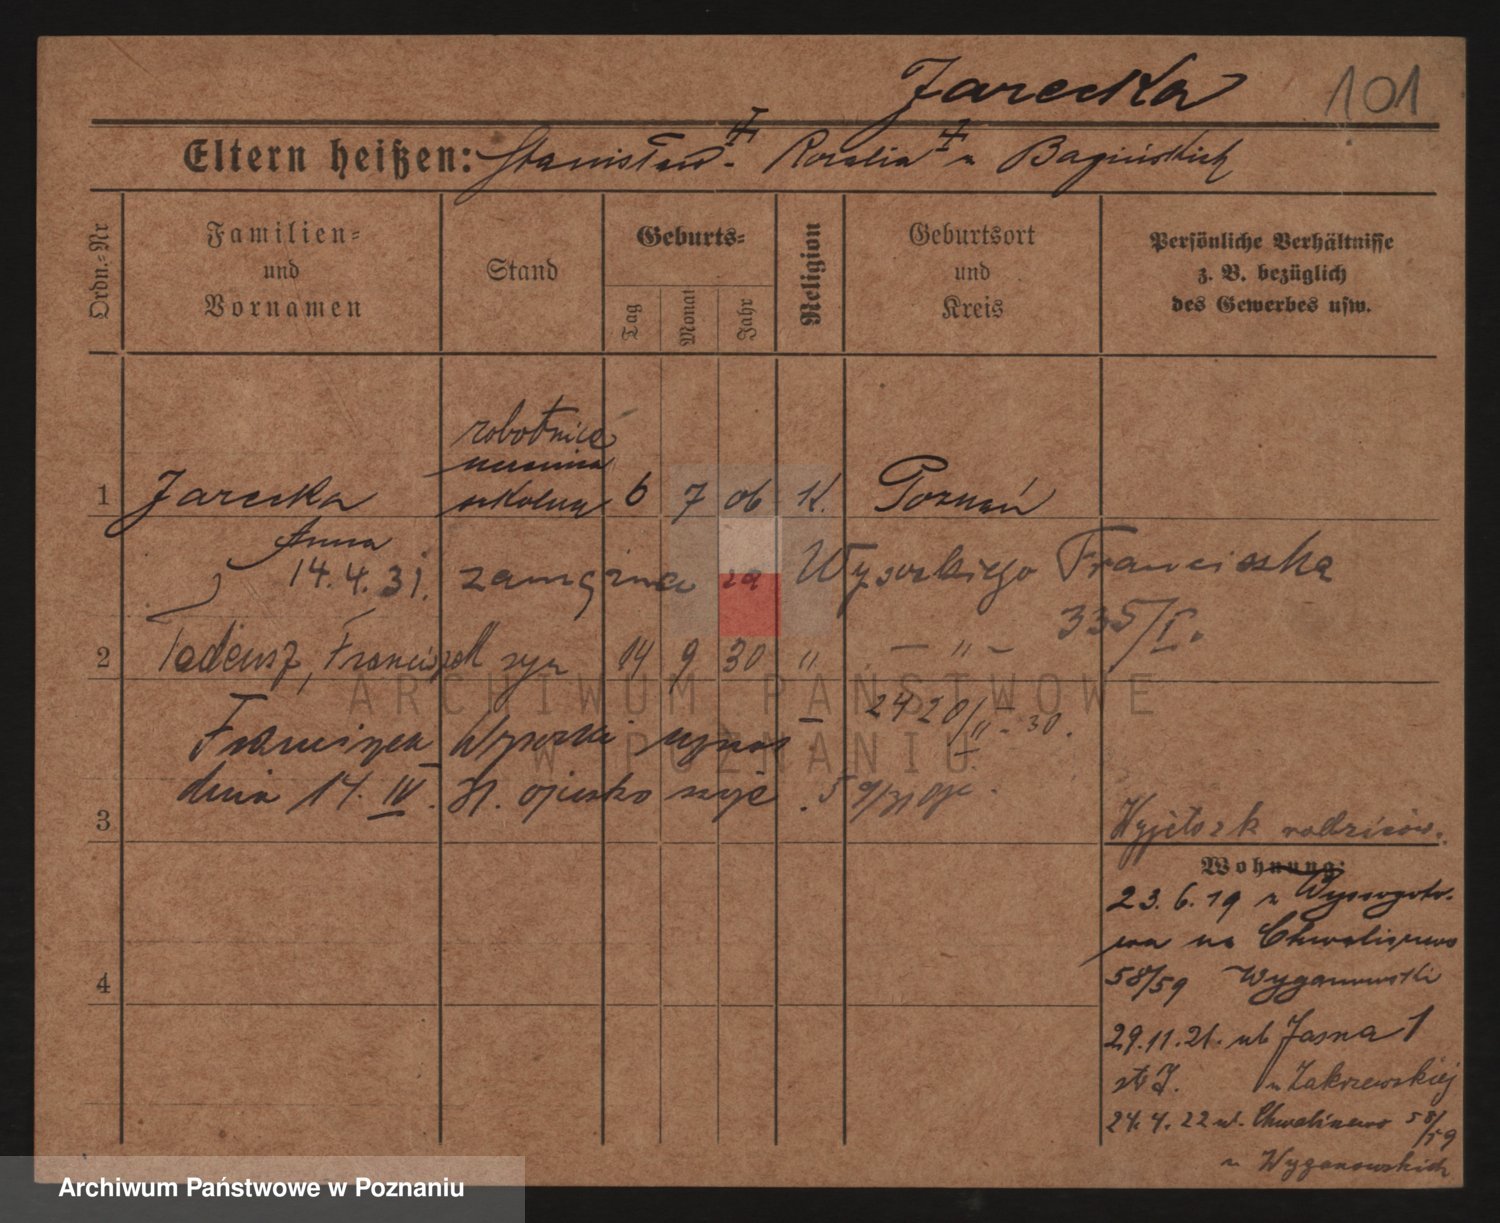 Jarecka 101
Eltern heißen: Stanisław - Rozalia z Bagińskich
Ordn.-Nr
Familien-
und
Vornamen
Stand
Geburts-
Tag
Monat
Jahr
Religion
Geburtsort
und
Kreis
Persönliche Verhältnisse
z. B. bezüglich
des Gewerbes usw.
robotnica
uczenica
szkolna
1 Jarecka 6 7 06 K. Poznań
Anna
14.4.31. zamężna za Wysockiego Franciszka
335/I.
2 Tadeusz, Franciszek syn 14 9 30 " — " —
2420/II - 30.
Franciszek Wysocki uznał
dnia 14. IV. ojcostwo
3
4
Wyjęto z k rodziców.
Wohnung:
23.6.19 z Wyssogoto-
wa na Chwaliszewo
58/59 Wyganowski
29.11.21. ul Jasna 1
st J. u Zakrzewskiej
24.4.22 ul. Chwaliszewo 58/59
u Wyganowskich
ARCHIWUM PAŃSTWOWE
W POZNANIU
Archiwum Państwowe w Poznaniu